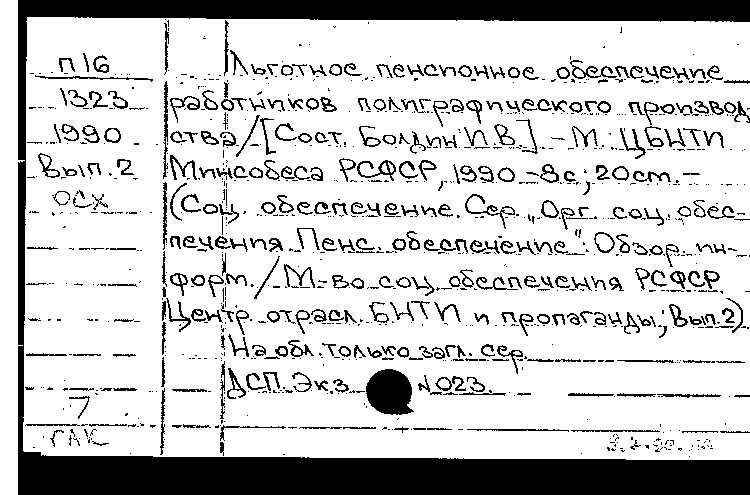 П16
1323
1990
Вып. 2
ОСХ
Льготное пенсионное обеспечение
работников полиграфического производ
ства/[Сост. Болдин И.В.] - М.: ЦБНТИ
Минсобеса РСФСР, 1990 - 8 с; 20 см. -
(Соц. обеспечение. Сер. "Орг. соц. обес-
печения. Пенс. обеспечение": Обзор. ин-
форм. / М-во соц. обеспечения РСФСР
Центр. отрасл. БНТИ и пропаганды; Вып. 2)
На обл. только загл. сер.
ДСП. Экз. N 023.
7
ГАК